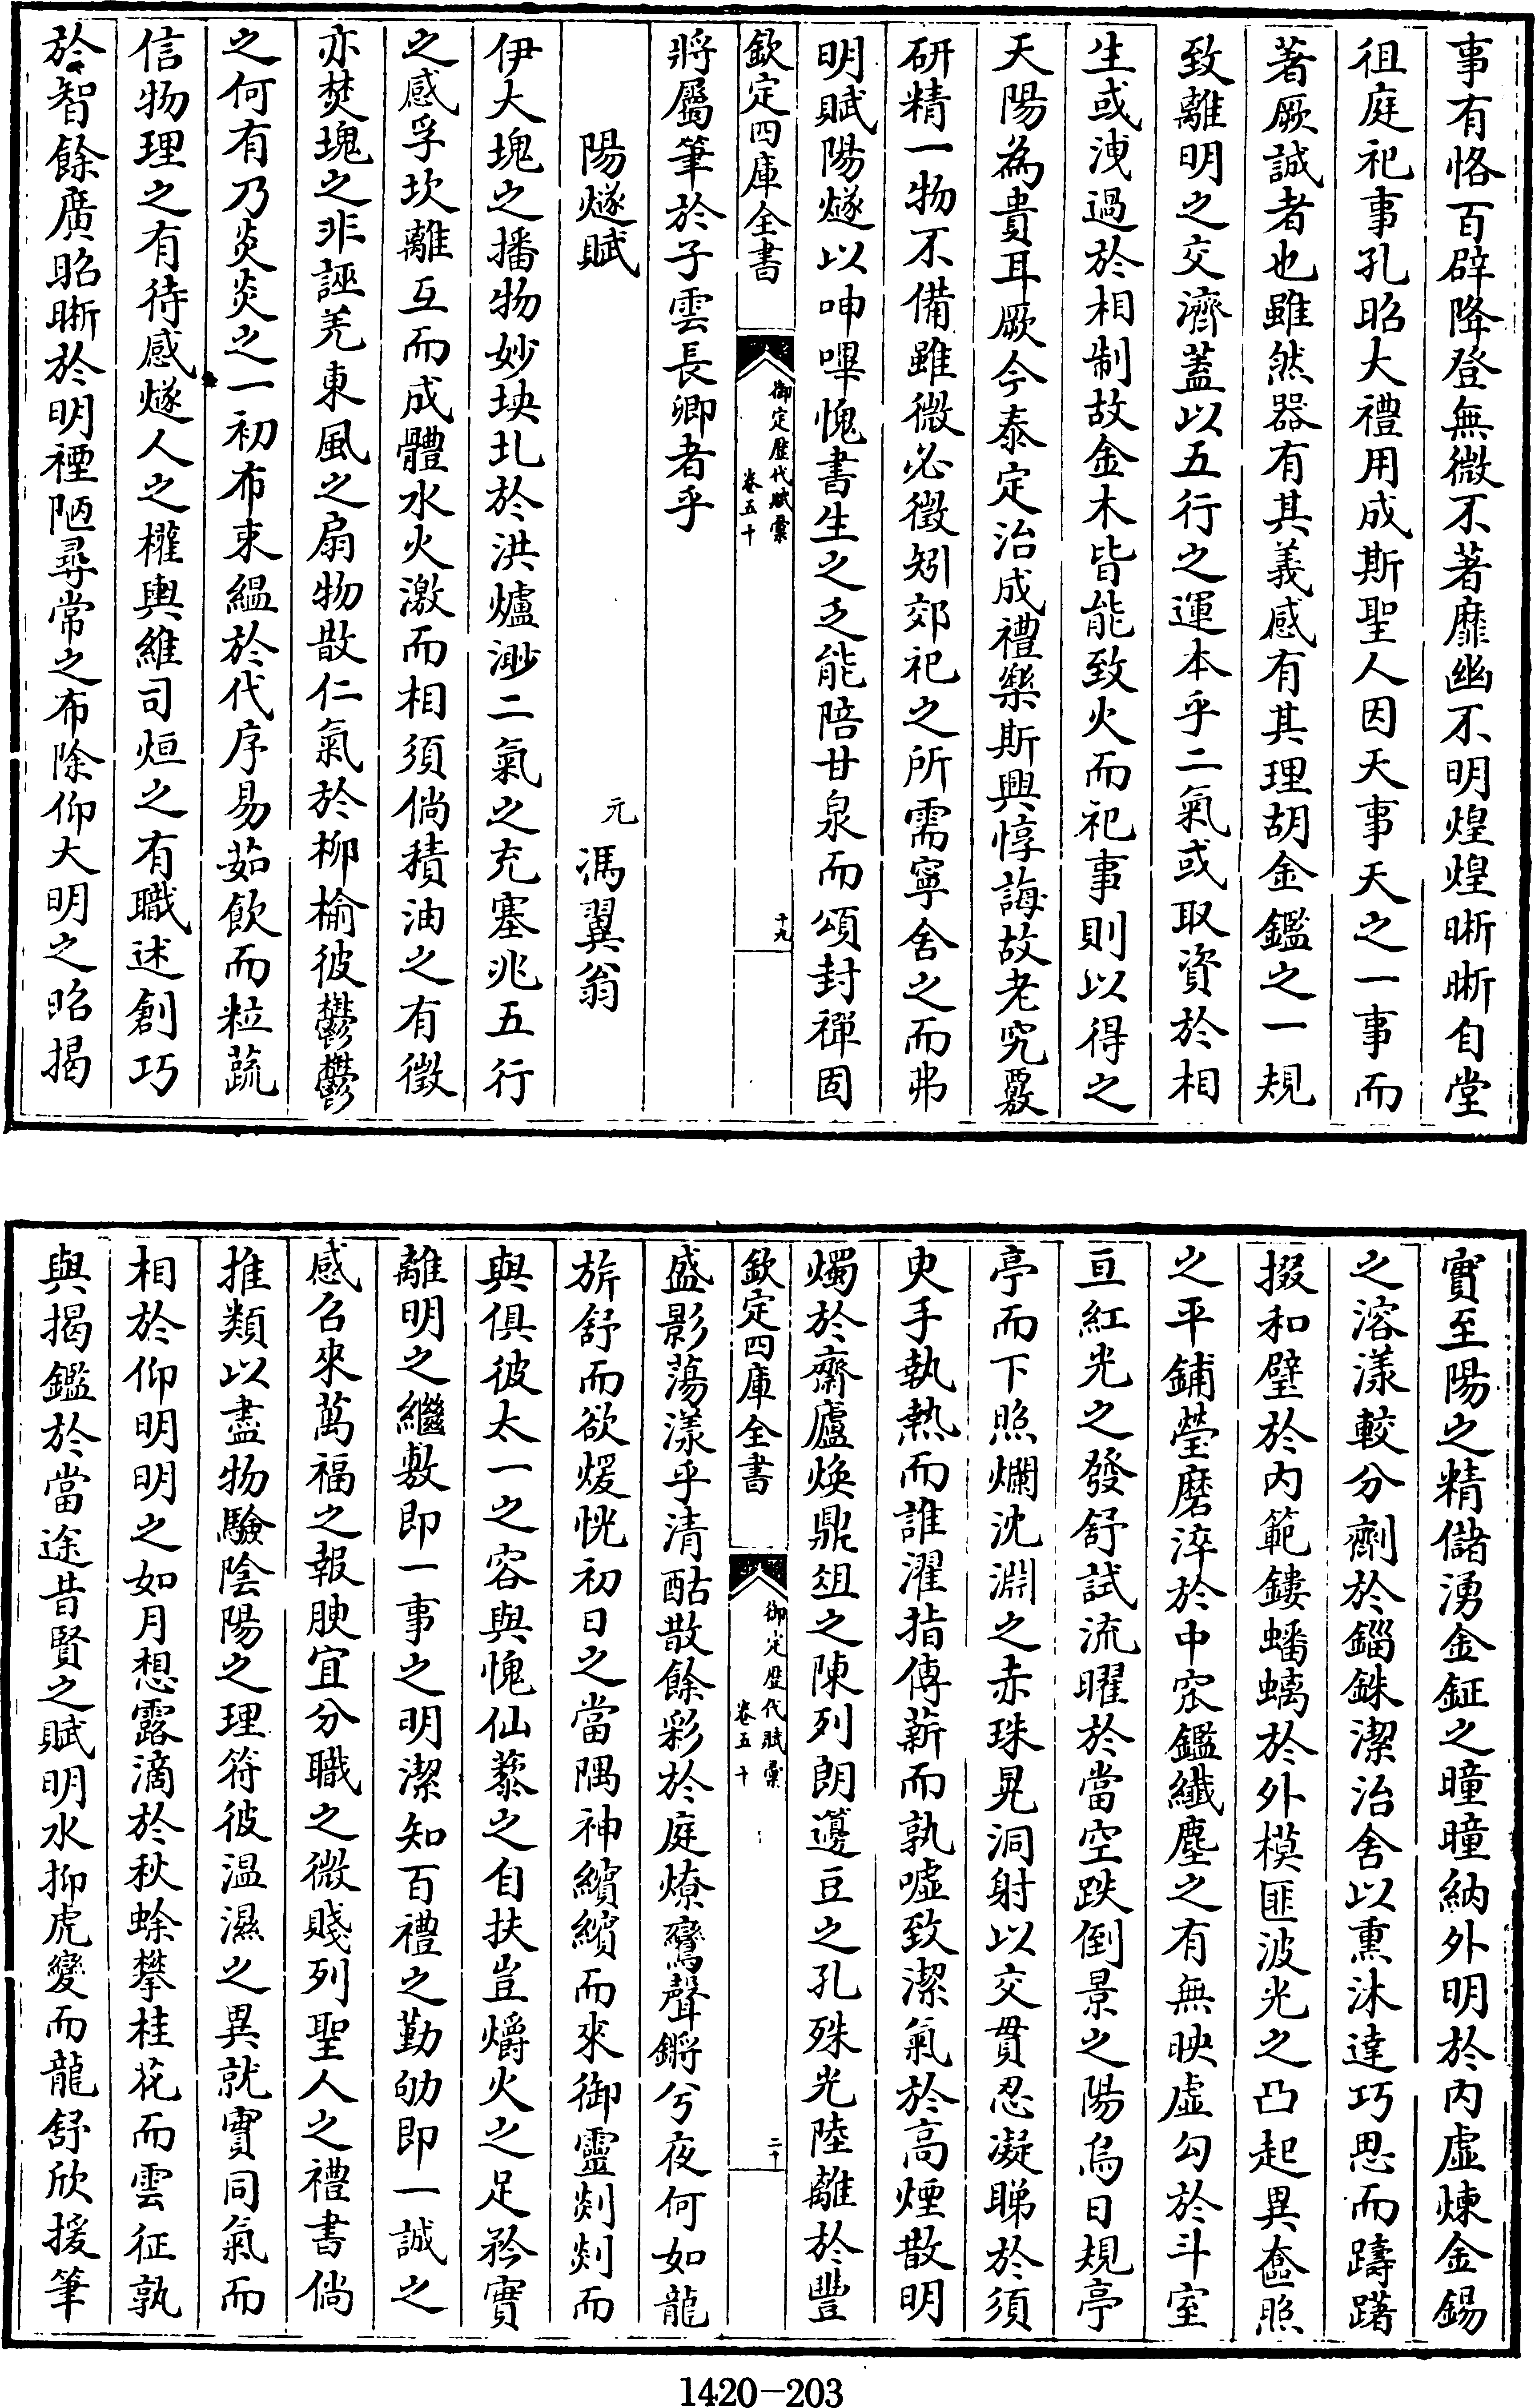 事有恪百辟降登無微不著靡幽不明煌煌晣晣自堂
徂庭祀事孔昭大禮用成斯聖人因天事天之一事而
著厥誠者也雖然器有其義感有其理胡金鑑之一規
致離明之交濟蓋以五行之運本乎二氣或取資於相
生或洩過於相制故金木皆能致火而祀事則以得之
天陽為貴耳厥今泰定治成禮樂斯興惇誨故老究覈
研精一物不備雖微必徵矧郊祀之所需寧舍之而弗
明賦陽燧以呻嗶愧書生之乏能陪甘泉而頌封禪固
欽定四庫全書
御定歴代賦彙
卷五十
十九
將屬筆於子雲長卿者乎
陽燧賦
元 馮翼翁
伊大塊之播物妙坱圠於洪爐渺二氣之充塞兆五行
之感孚坎離互而成體水火激而相須倘積油之有徵
亦焚塊之非誣羌東風之扇物散仁氣於柳榆彼鬱鬱
之何有乃炎炎之一初布束緼於代序易茹飲而粒蔬
信物理之有待感燧人之權輿維司烜之有職述創巧
於智餘廣昭晣於明禋陋尋常之布除仰大明之昭揭
實至陽之精儲湧金鉦之曈曈納外明於內虛煉金錫
之溶漾較分劑於錙銖潔治舍以熏沐達巧思而躊躇
掇和璧於內範鏤蟠螭於外模匪波光之凸起異奩照
之平鋪瑩磨淬於中窊鑑纖塵之有無映虛勾於斗室
亘紅光之發舒試流曜於當空跌倒景之陽烏日規亭
亭而下照爛沈淵之赤珠晃洞射以交貫忍凝睇於須
臾手執熱而誰濯指傳薪而孰噓致潔氣於高煙散明
燭於齋廬煥鼎俎之陳列朗籩豆之孔殊光陸離於豐
欽定四庫全書
御定歴代賦彙
卷五十
二十
盛影蕩漾乎清酤散餘彩於庭燎鸞聲鏘兮夜何如龍
旂舒而欲煖恍初日之當隅神繽繽而來御靈剡剡而
與俱彼太一之容與愧仙藜之自扶豈爝火之足矜實
離明之繼敷即一事之明潔知百禮之勤劬即一誠之
感召來萬福之報腴宜分職之微賤列聖人之禮書倘
推類以盡物驗陰陽之理符彼温濕之異就實同氣而
相於仰明明之如月想露滴於秋蜍攀桂花而雲征孰
與揭鑑於當途昔賢之賦明水抑虎變而龍舒欣援筆
1420-203